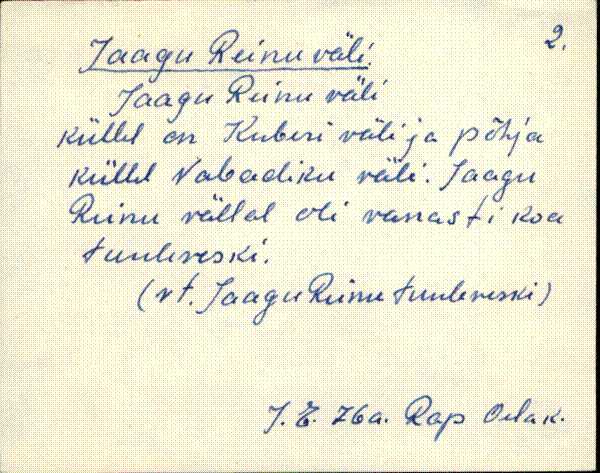 2.
Jaagu Reinu väli.
Jaagu Reinu väli
küllel on Kuberi väli ja põhja
küllel Vabadiku väli. Jaagu
Reinu väljal oli vanasti ka
tuuleveski.
(vt. Jaagu Reinu tuuleveski)
J. E. 76a. Rap